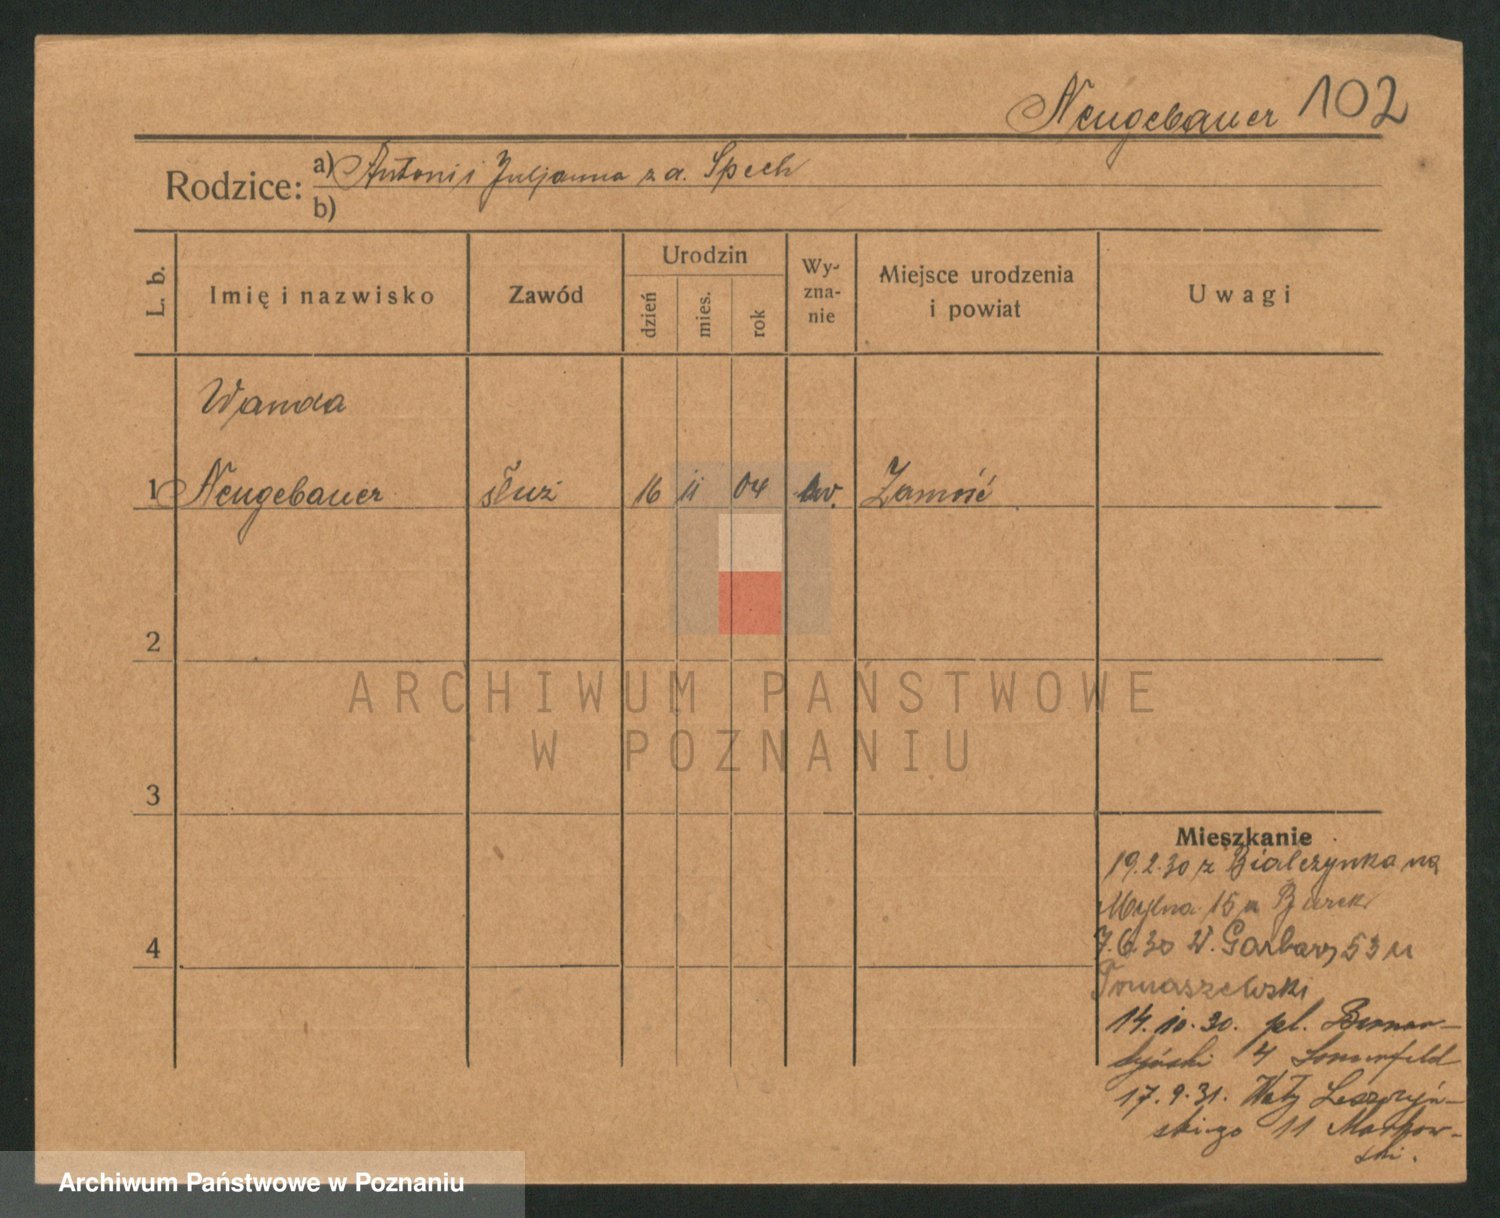 Neugebauer 102
Rodzice: a) Antoni i Juljanna z d. Spech
b)
L. b.
Imię i nazwisko
Zawód
Urodzin
dzień
mies.
rok
Wy-
zna-
nie
Miejsce urodzenia
i powiat
Uwagi
Wanda
1 Neugebauer służ 16 11 04 Zamość
2
ARCHIWUM PAŃSTWOWE
W POZNANIU
3
Mieszkanie
19.2.30 z Białczynka na
Mylna 15 u
4
7.6.30 W. Garbary 53 u
Tomaszewski
14.10.30. pl. Bernar-
dyński 4 Somerfeld
17.9.31. Wały Leszczyń-
skiego 11 Markow-
ski.
Archiwum Państwowe w Poznaniu